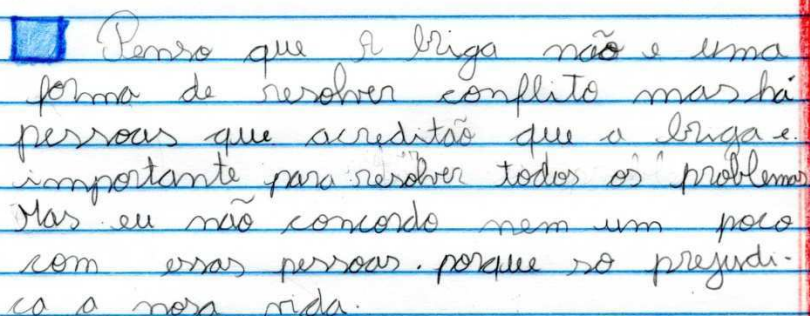 Penso que a briga não e uma
forma de resolver conflito mas há
pessoas que acreditão que a briga e
importante para resolver todos os problemas
Mas eu não concordo nem um poco
com essas pessoas. porque so prejudi-
ca a nosa vida.